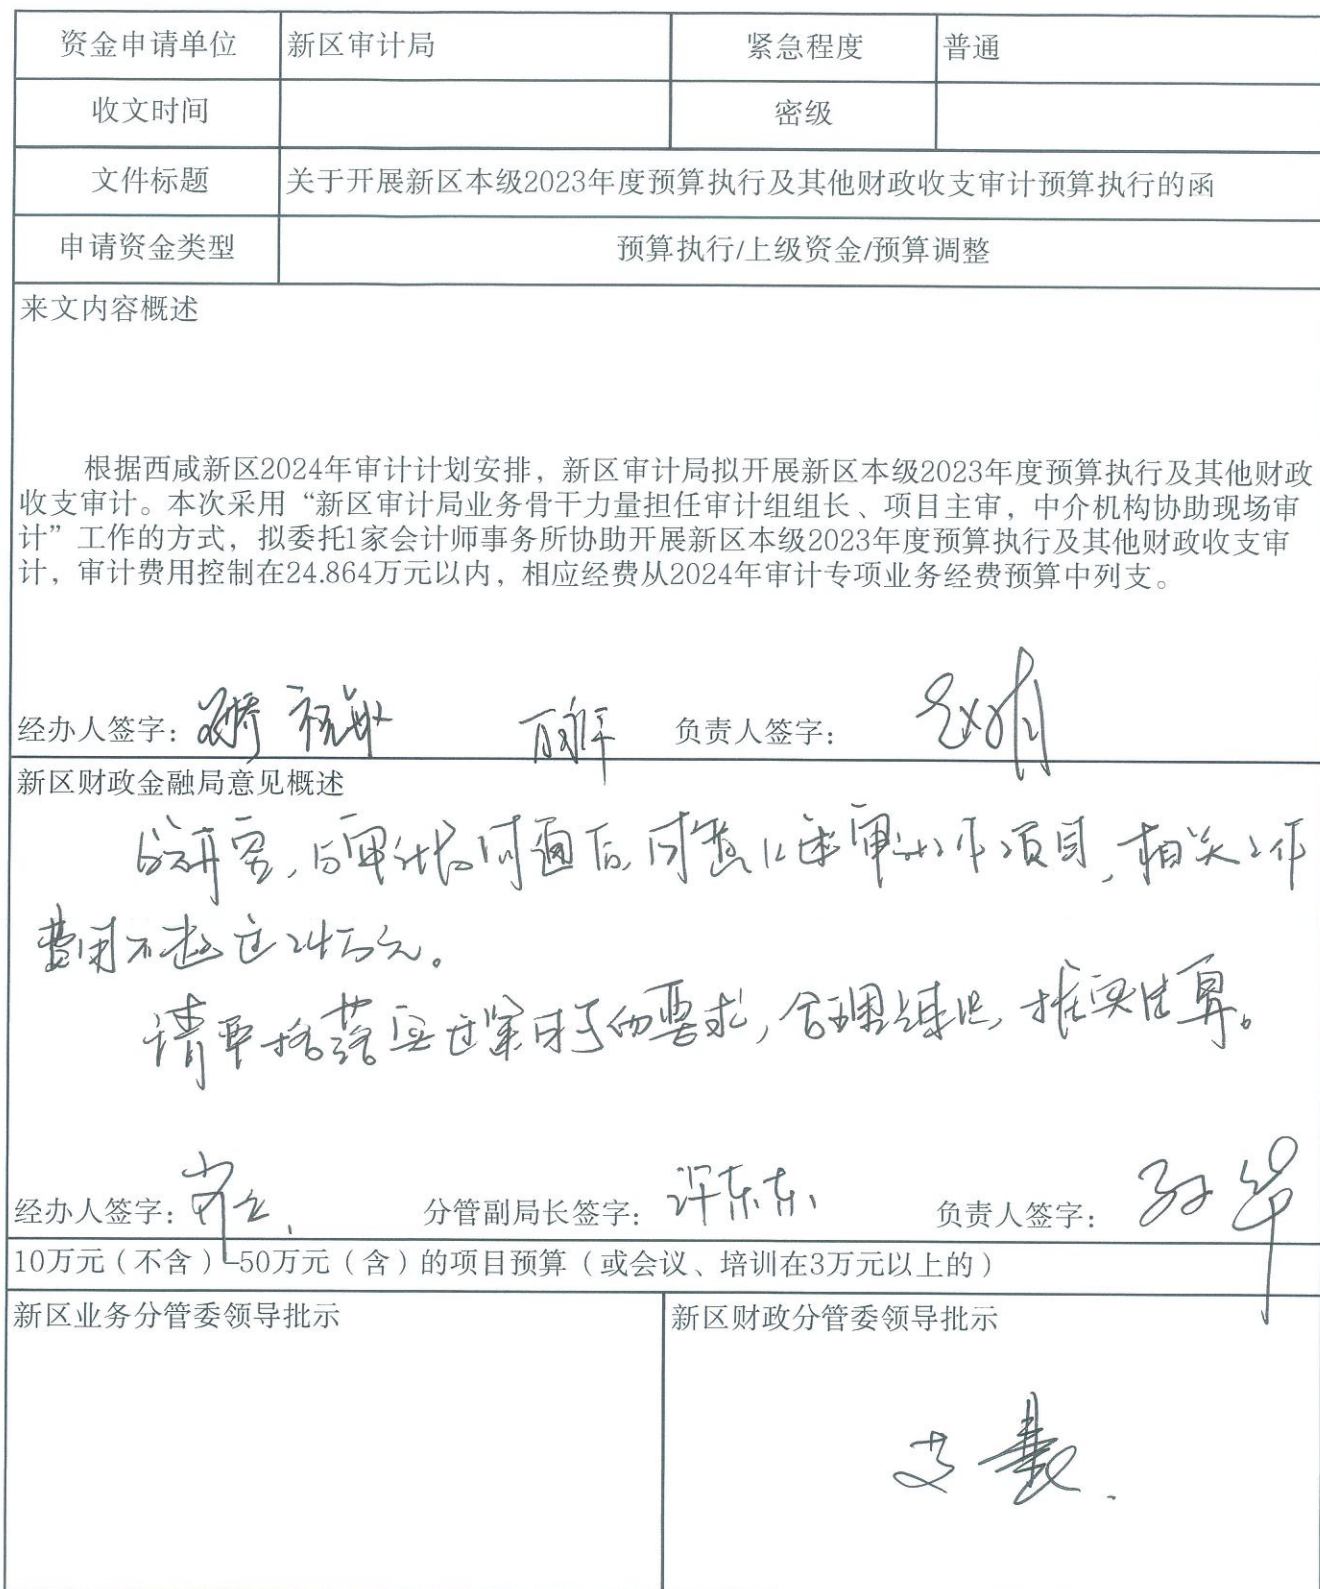 资金申请单位 新区审计局 紧急程度 普通
收文时间 密级
文件标题 关于开展新区本级2023年度预算执行及其他财政收支审计预算执行的函
申请资金类型 预算执行/上级资金/预算调整
来文内容概述
根据西咸新区2024年审计计划安排，新区审计局拟开展新区本级2023年度预算执行及其他财政
收支审计。本次采用“新区审计局业务骨干力量担任审计组组长、项目主审，中介机构协助现场审
计”工作的方式，拟委托1家会计师事务所协助开展新区本级2023年度预算执行及其他财政收支审
计，审计费用控制在24.864万元以内，相应经费从2024年审计专项业务经费预算中列支。
经办人签字： 负责人签字：
新区财政金融局意见概述
经研究，与审计局沟通后，同意上述审计工作项目，相关工作
费用不超过24万元。
请严格落实过紧日子的要求，合理，据实结算。
经办人签字： 分管副局长签字：许东东 负责人签字：
10万元（不含）-50万元（含）的项目预算（或会议、培训在3万元以上的）
新区业务分管委领导批示 新区财政分管委领导批示